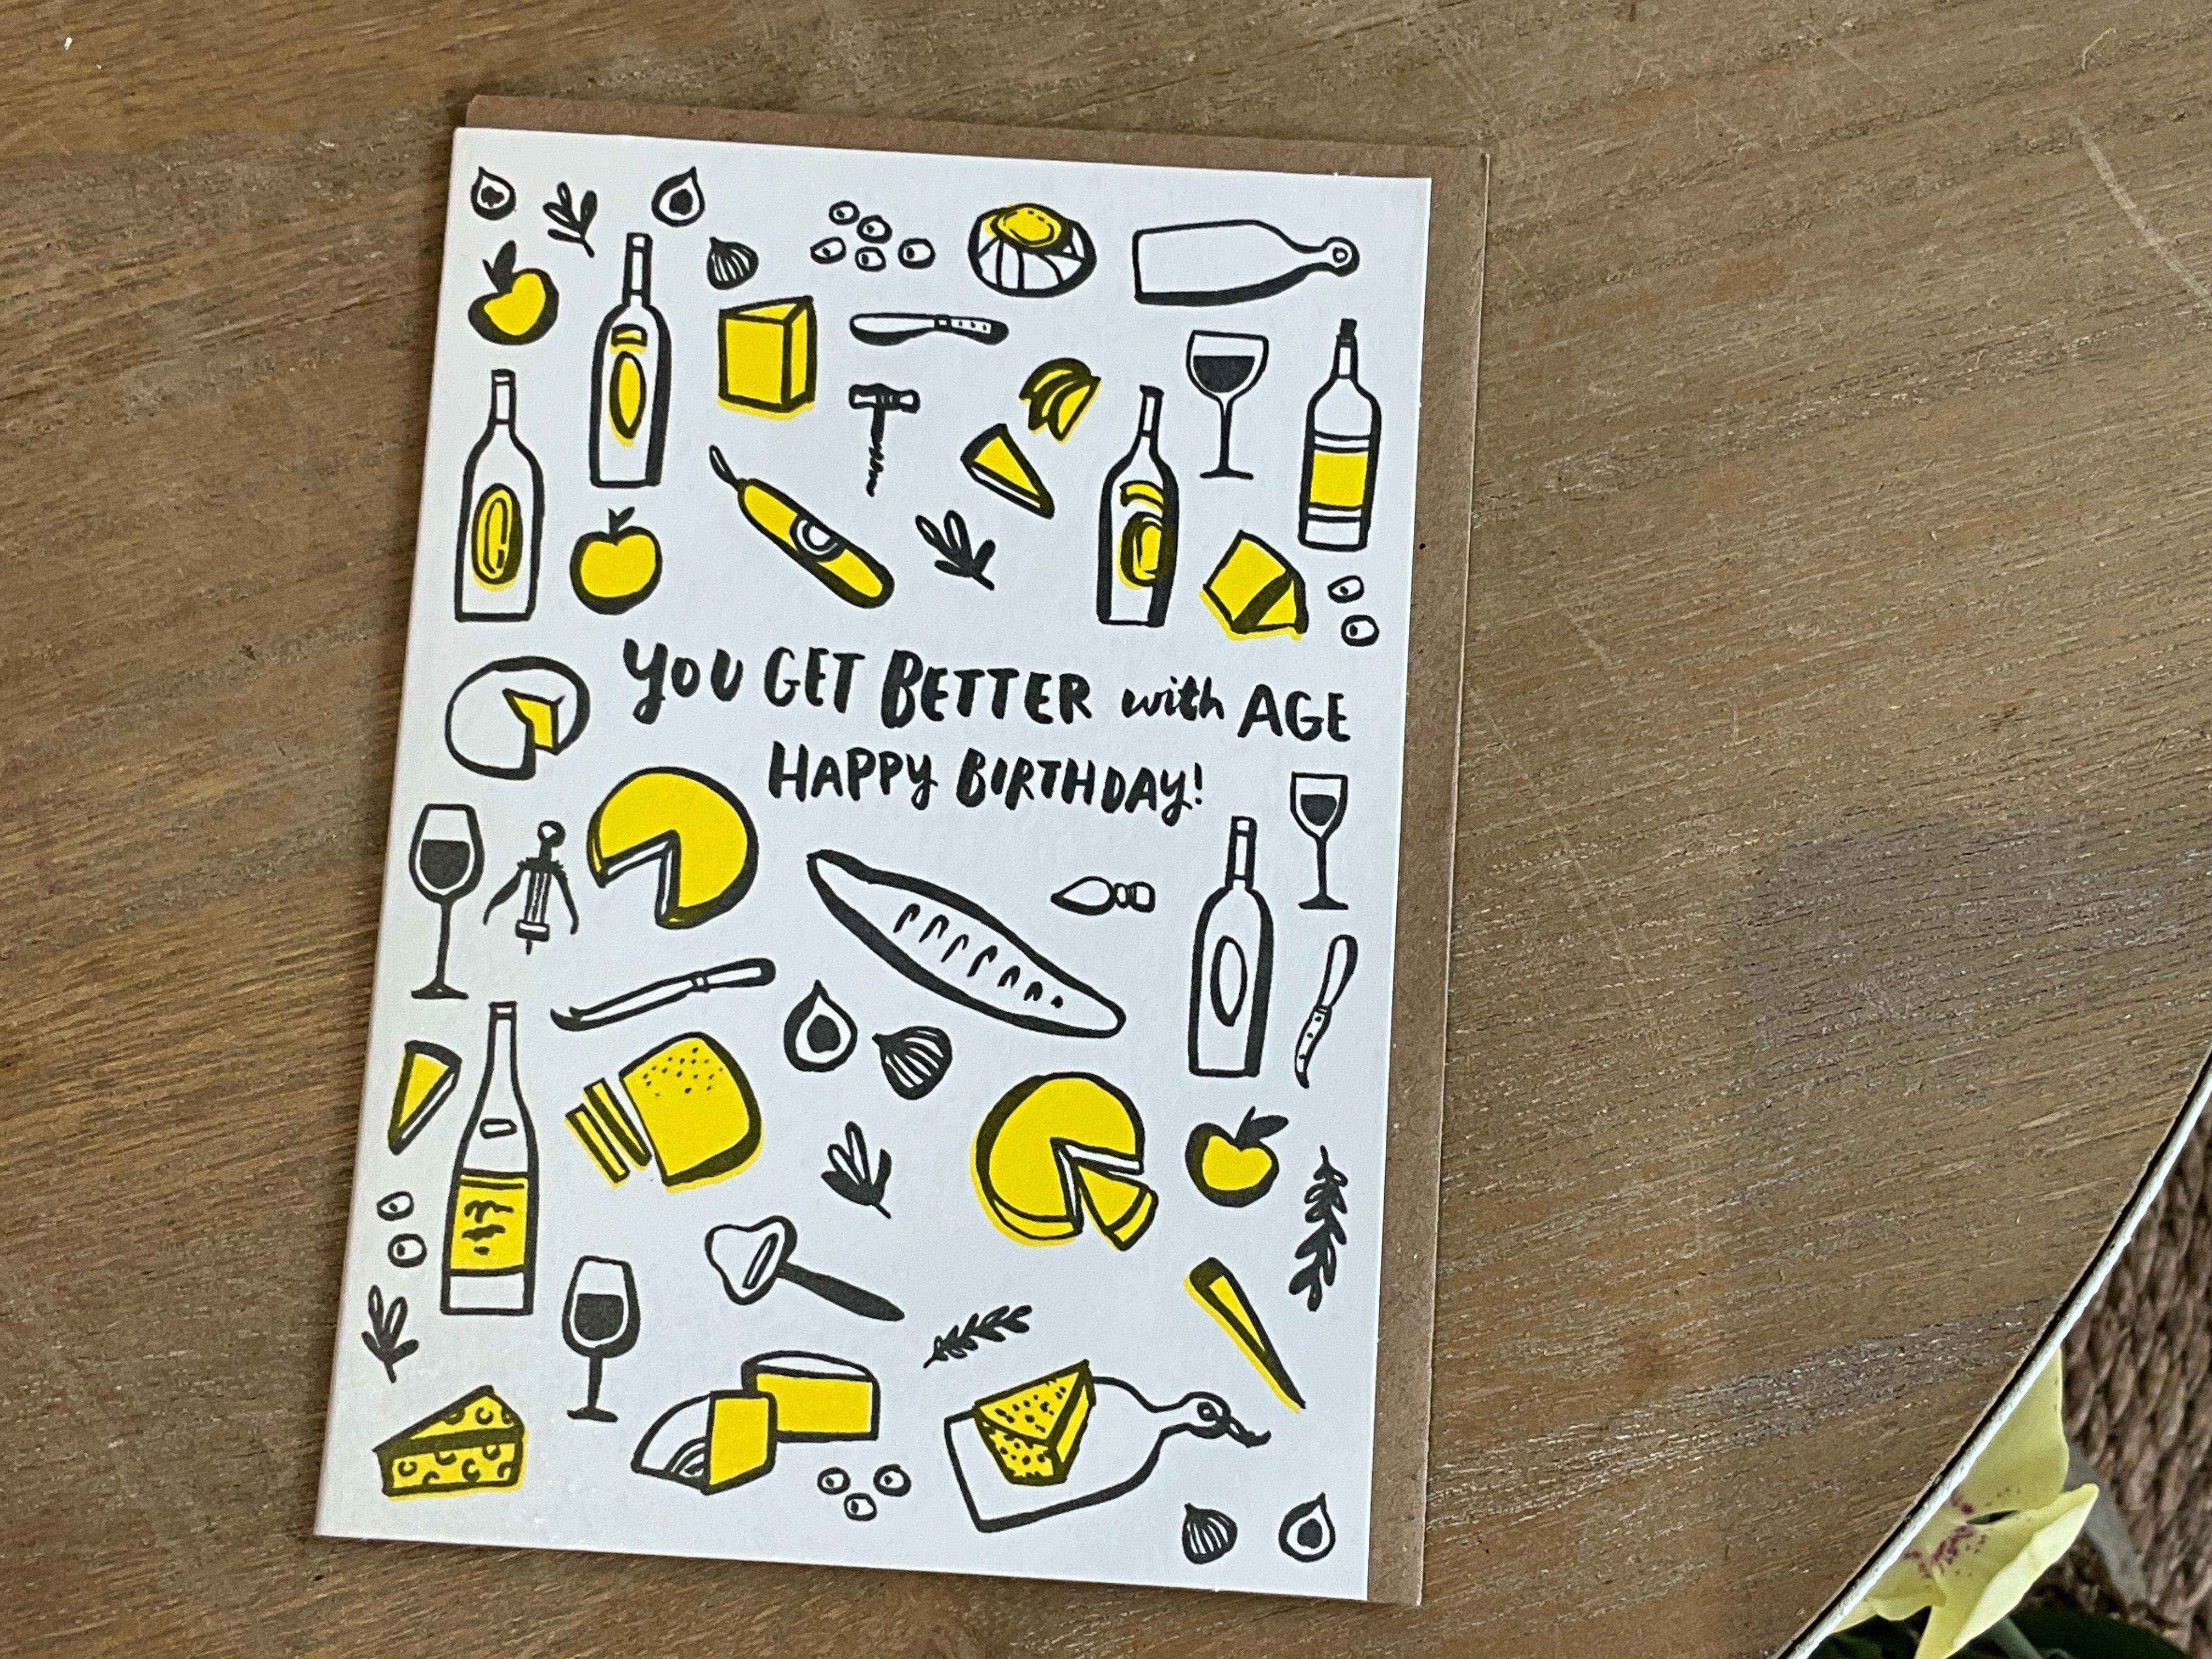 YOU GET BETTER with AGE
HAPPY BIRTHDAY!